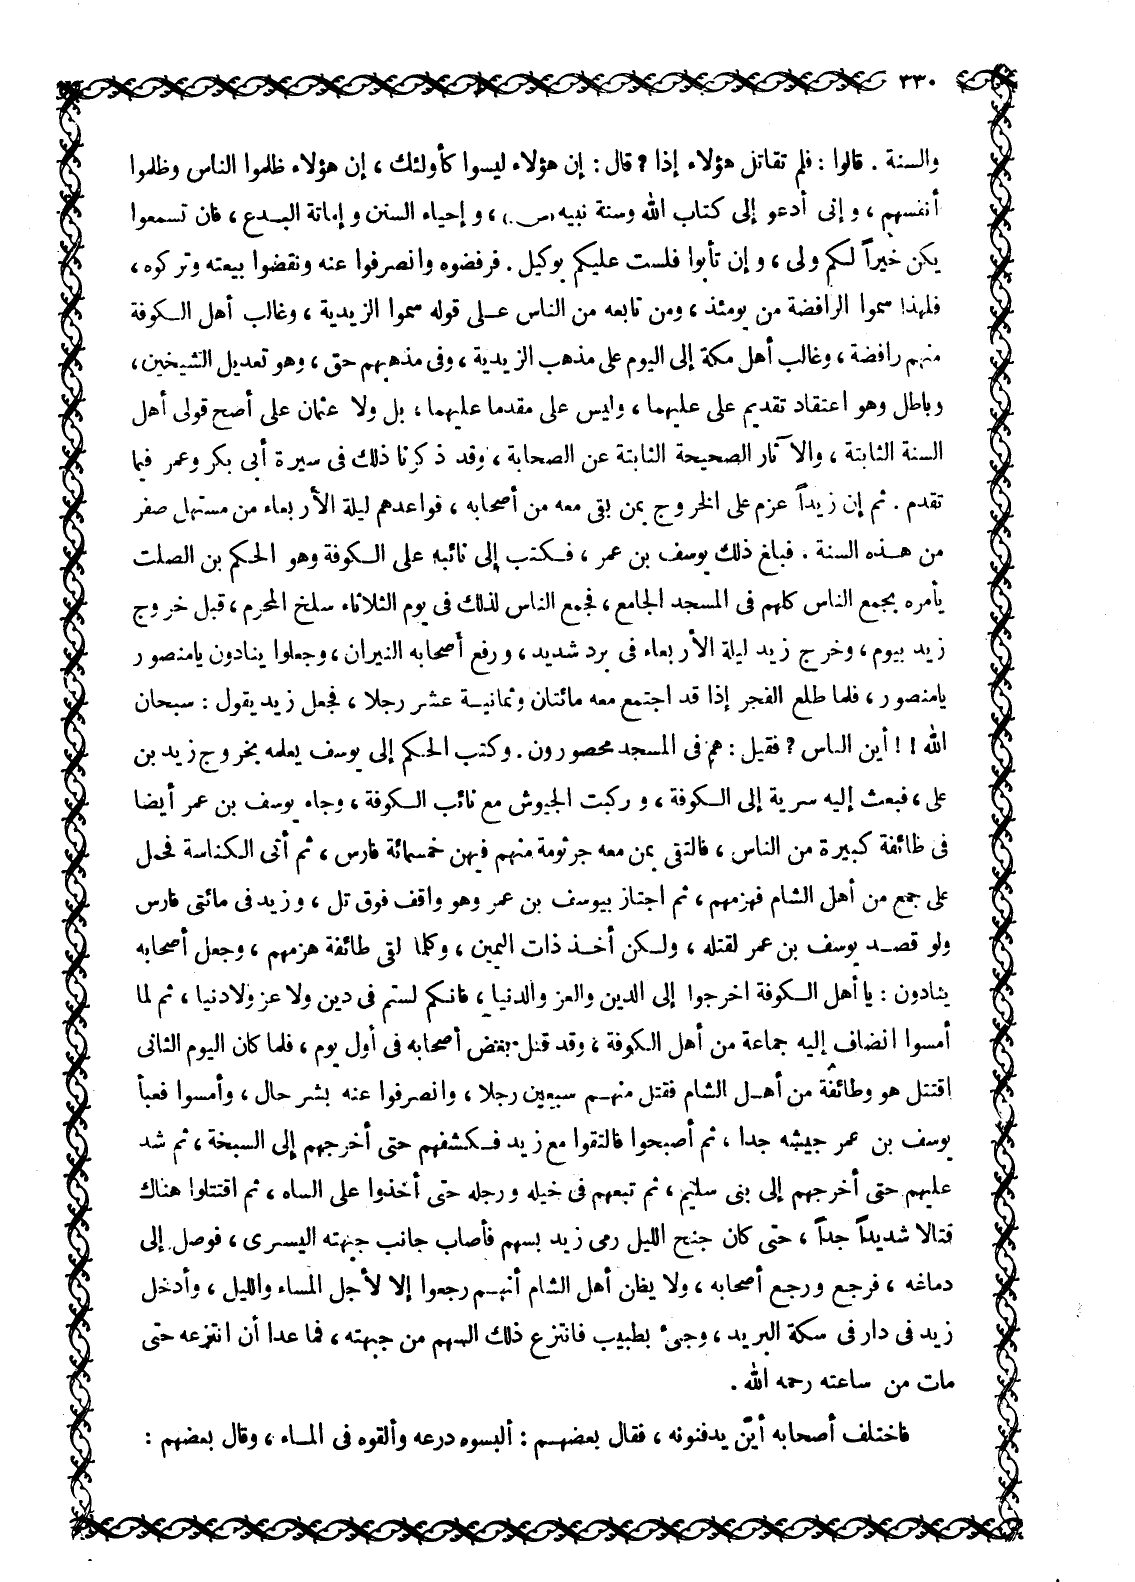 ٣٣٠
والسنة . قالوا : فلم تقاتل هؤلاء إذا ? قال : إن هؤلاء ليسوا كأولئك ، إن هؤلاء ظلموا الناس وظلموا
أنفسهم ، و إنى أدعو إلى كتاب الله وسنة نبيه (س.) ، و إحياء السنن و إماتة البدع ، فان تسمعوا
يكن خيراً لكم ولى ، و إن تأبوا فلست عليكم بوكيل . فرفضوه وانصرفوا عنه ونقضوا بيعته وتركوه ،
فلهذا سموا الرافضة من يومئذ ، ومن تابعه من الناس على قوله سموا الزيدية ، وغالب أهل الكوفة
منهم رافضة ، وغالب أهل مكة إلى اليوم على مذهب الزيدية ، وفى مذهبهم حق ، وهو تعديل الشيخين ،
وباطل وهو اعتقاد تقديم على عليهما ، وليس على مقدما عليهما ، بل ولا عثمان على أصح قولى أهل
السنة الثابتة ، والآثار الصحيحة الثابتة عن الصحابة ، وقد ذكرنا ذلك فى سيرة أبى بكر وعمر فيما
تقدم . ثم إن زيداً عزم على الخروج بمن بقى معه من أصحابه ، فواعدهم ليلة الأربعاء من مستهل صفر
من هذه السنة . فبلغ ذلك يوسف بن عمر ، فكتب إلى نائبه على الكوفة وهو الحكم بن الصلت
يأمره بجمع الناس كلهم فى المسجد الجامع ، فجمع الناس لذلك فى يوم الثلاثاء سلخ المحرم ، قبل خروج
زيد بيوم ، وخرج زيد ليلة الأربعاء فى برد شديد ، ورفع أصحابه النيران ، وجعلوا ينادون يامنصور
يامنصور ، فلما طلع الفجر إذا قد اجتمع معه مائتان وثمانية عشر رجلا ، فجعل زيد يقول : سبحان
الله ! ! أين الناس ? فقيل : هم فى المسجد محصورون . وكتب الحكم إلى يوسف يعلمه بخروج زيد بن
على ، فبعث إليه سرية إلى الكوفة ، وركبت الجيوش مع نائب الكوفة ، وجاء يوسف بن عمر أيضا
فى طائفة كبيرة من الناس ، فالتقى بمن معه جرثومة منهم فيهن خمسمائة فارس ، ثم أتى الكناسة فحمل
على جمع من أهل الشام فهزمهم ، ثم اجتاز بيوسف بن عمر وهو واقف فوق تل ، وزيد فى مائتى فارس
ولو قصد يوسف بن عمر لقتله ، ولكن أخذ ذات اليمين ، وكلما لقى طائفة هزمهم ، وجعل أصحابه
ينادون : يا أهل الكوفة اخرجوا إلى الدين والعز والدنيا ، فانكم لستم فى دين ولا عز ولا دنيا ، ثم لما
أمسوا انضاف إليه جماعة من أهل الكوفة ، وقد قتل بعض أصحابه فى أول يوم ، فلما كان اليوم الثانى
اقتتل هو وطائفة من أهل الشام فقتل منهم سبعين رجلا ، وانصرفوا عنه بشر حال ، وأمسوا فعبأ
يوسف بن عمر جيشه جدا ، ثم أصبحوا فالتقوا مع زيد فكشفهم حتى أخرجهم إلى السبخة ، ثم شد
عليهم حتى أخرجهم إلى بنى سليم ، ثم تبعهم فى خيله ورجله حتى أخذوا على الساه ، ثم اقتتلوا هناك
قتالا شديداً جداً ، حتى كان جنح الليل رمى زيد بسهم فأصاب جانب جبهته اليسرى ، فوصل إلى
دماغه ، فرجع ورجع أصحابه ، ولا يظن أهل الشام أنهم رجعوا إلا لأجل المساء والليل ، وأدخل
زيد فى دار فى سكة البريد ، وجىء بطبيب فانتزع ذلك السهم من جبهته ، فما عدا أن انتزعه حتى
مات من ساعته رحمه الله .
فاختلف أصحابه أين يدفنونه ، فقال بعضهم : ألبسوه درعه وألقوه فى الماء ، وقال بعضهم :